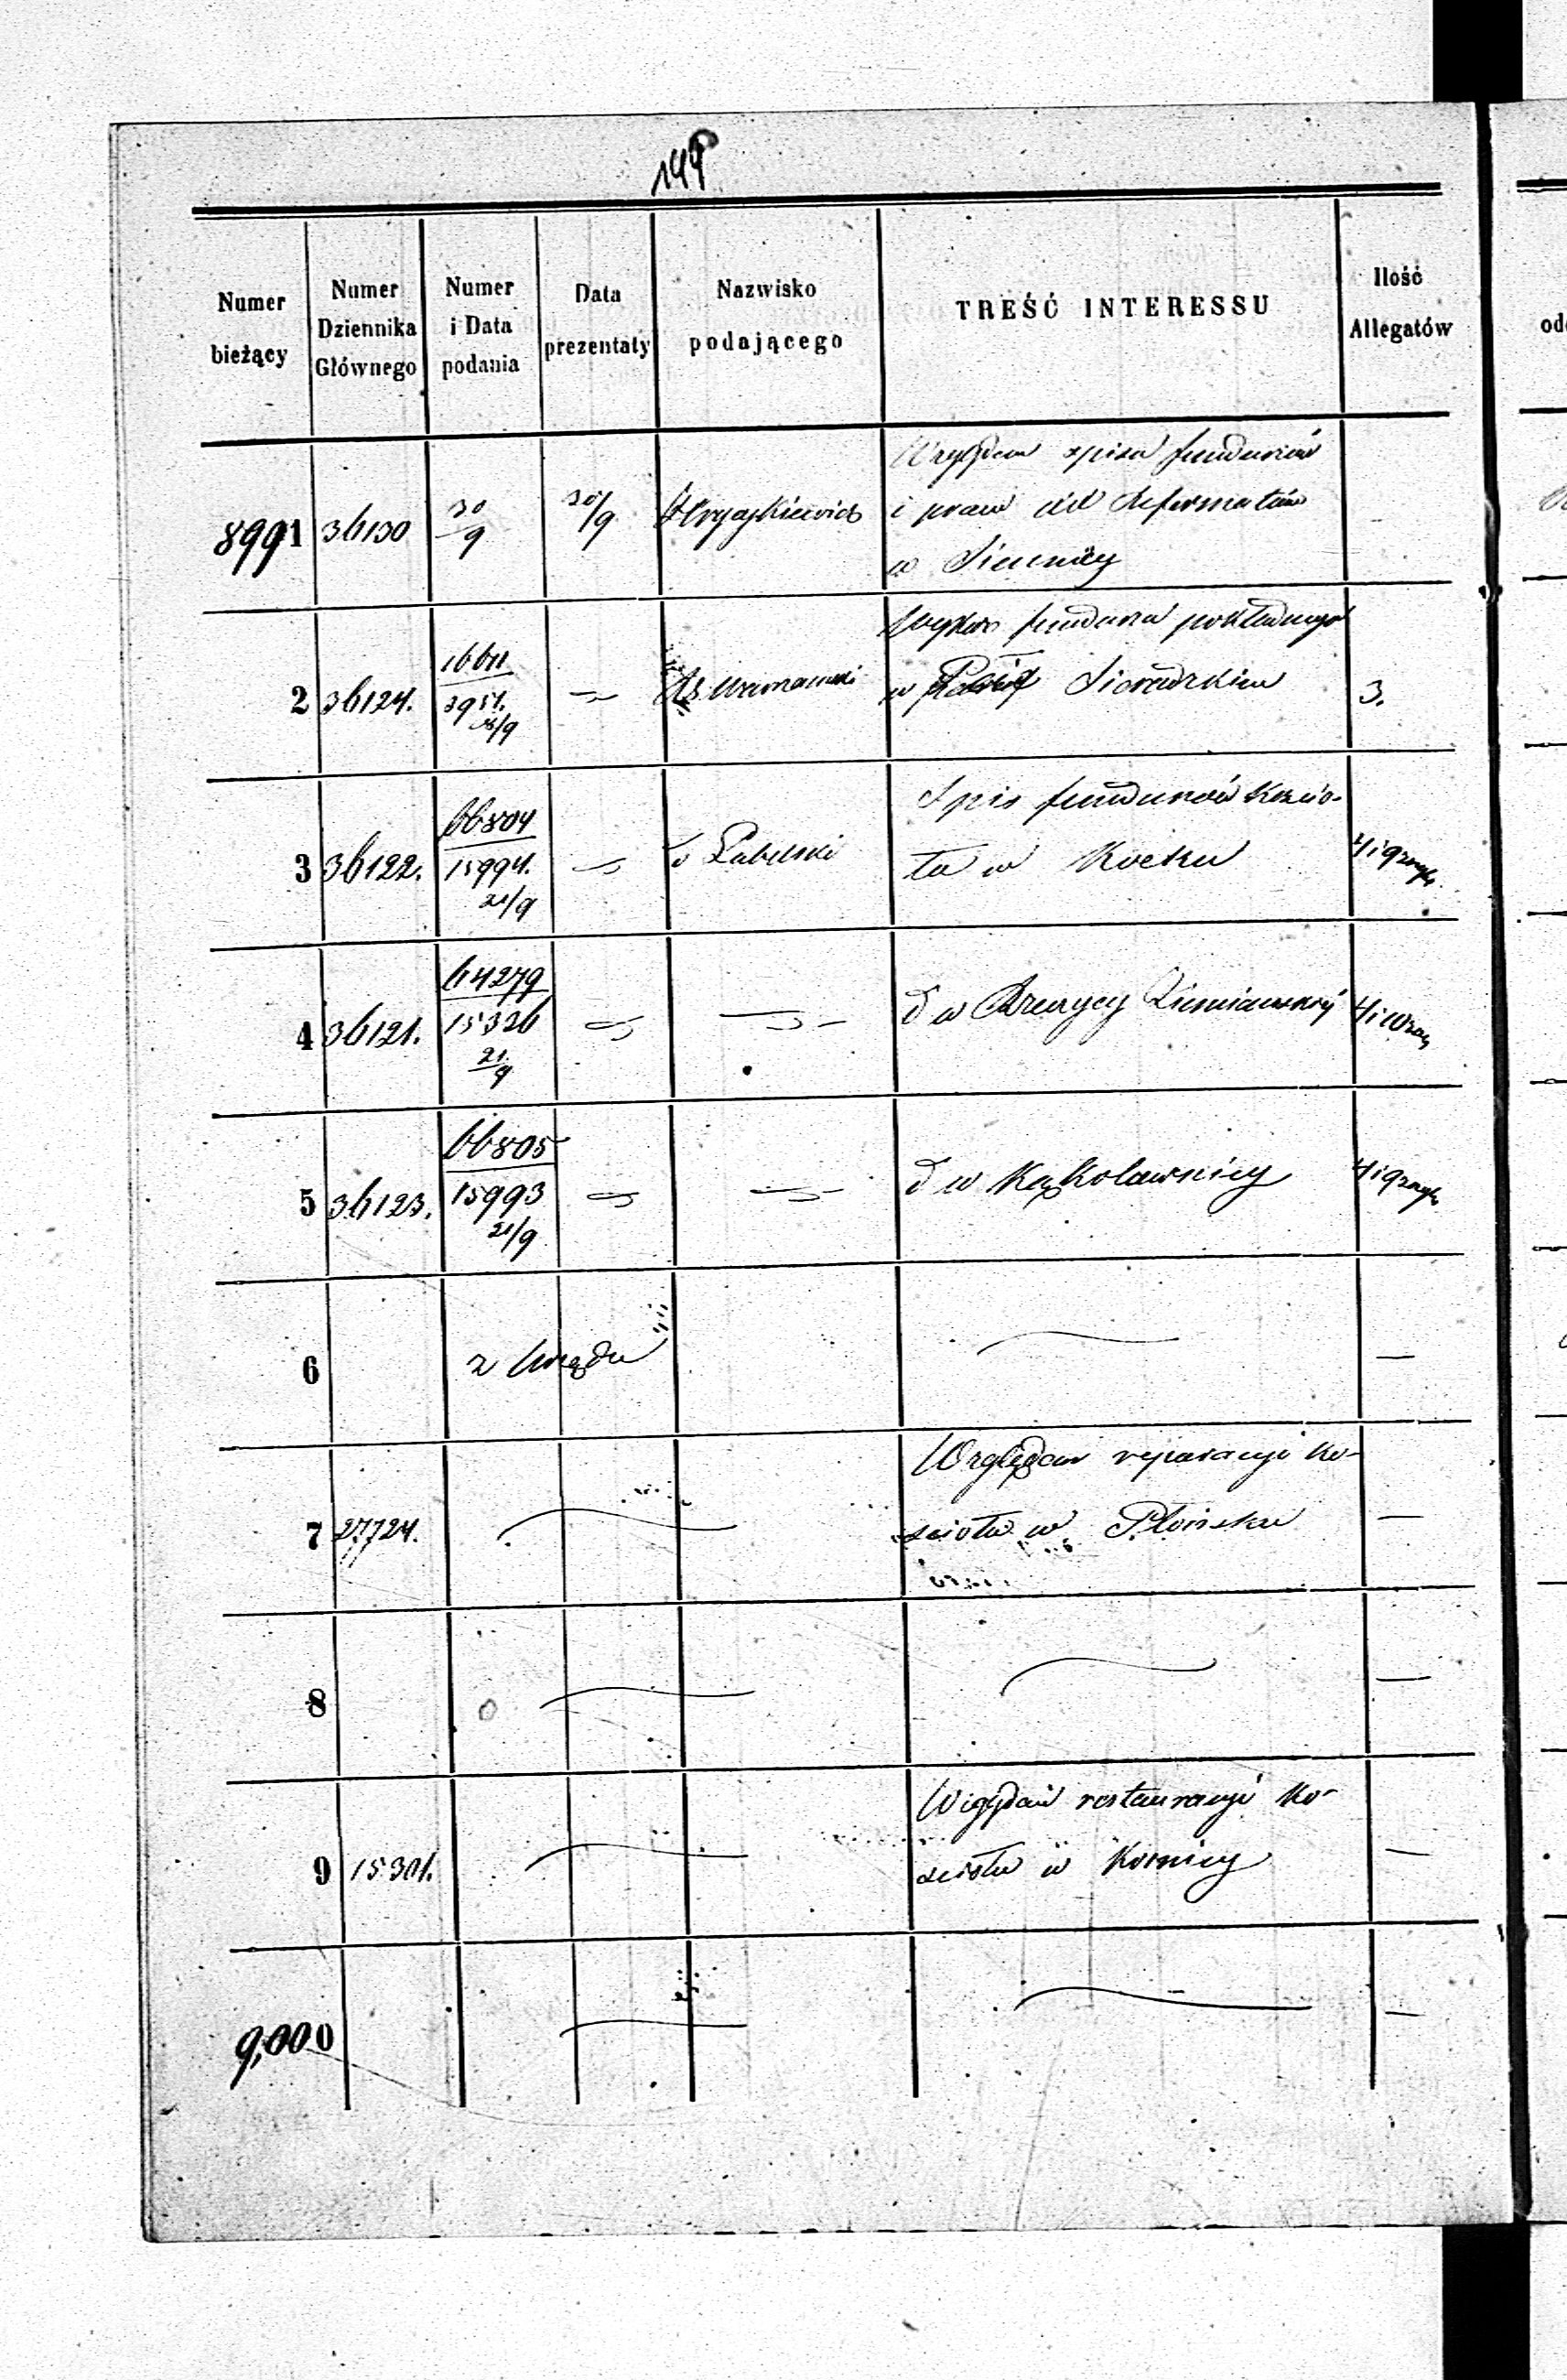 149
Numer bieżący
Numer Dziennika Głównego
Numer i Data podania
Data prezentaty
Nazwisko podającego
TREŚĆ INTERESSU
Ilość Allegatów
8991 36130 30/9 30/9
Względem spisu funduszów
i praw XX Reformatów
w Siennicy
2 36124.
funduszu pokładnego
w Sieradzkim
3.
3 36122. 66804
15994.
21/9
Lubelski
Spis funduszów Kościo-
ła w Kocku
4 i
4 36121. 64279
15326
21/9
d w Brzezycy Ziemiańskiej
4 i
5 36123. 66805
15993
21/9
d w Kąkolewnicy
4 i
6 z Urzędu —
7 27724.
Względem reparacyi Ko-
ścioła w Płońsku
—
8 —
9 15301.
Względem restauracyi Ko-
ścioła w Kornicy
—
9,000 —